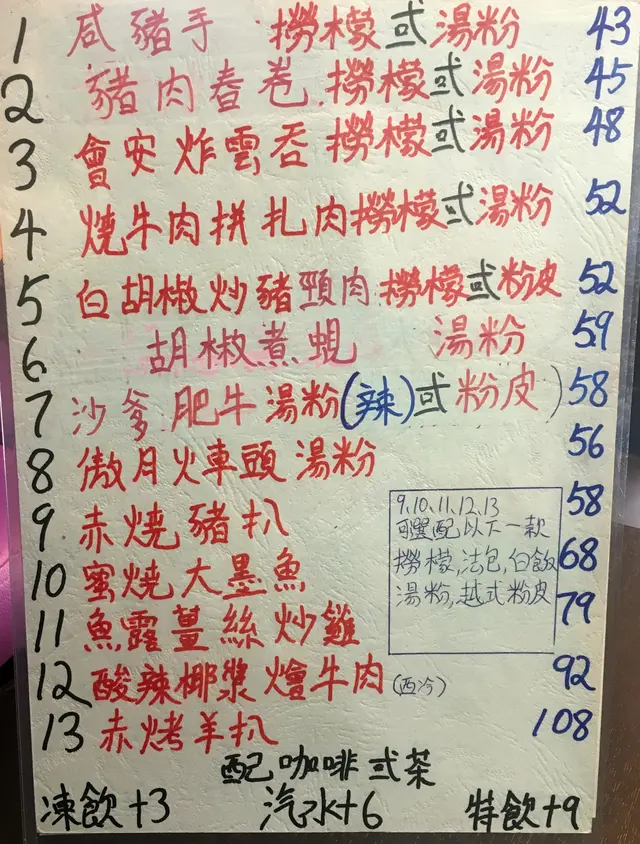 1 咸豬手 撈檬或湯粉 43
2 豬肉春卷 撈檬或湯粉 45
3 會安炸雲吞 撈檬或湯粉 48
4 燒牛肉拼扎肉撈檬或湯粉 52
5 白胡椒炒豬頸肉 撈檬或粉皮 52
6 胡椒煮蜆 湯粉 59
7 沙爹肥牛湯粉(辣)或粉皮) 58
8 傲月火車頭湯粉 56
9 赤燒豬扒 58
10 蜜燒大墨魚 68
11 魚露薑絲炒雞 79
12 酸辣椰漿燴牛肉(西冷) 92
13 赤烤羊扒 108
9、10、11、12、13
可選配以下一款
撈檬,法包,白飯
湯粉,越式粉皮
配咖啡或茶
凍飲+3 汽水+6 特飲+9